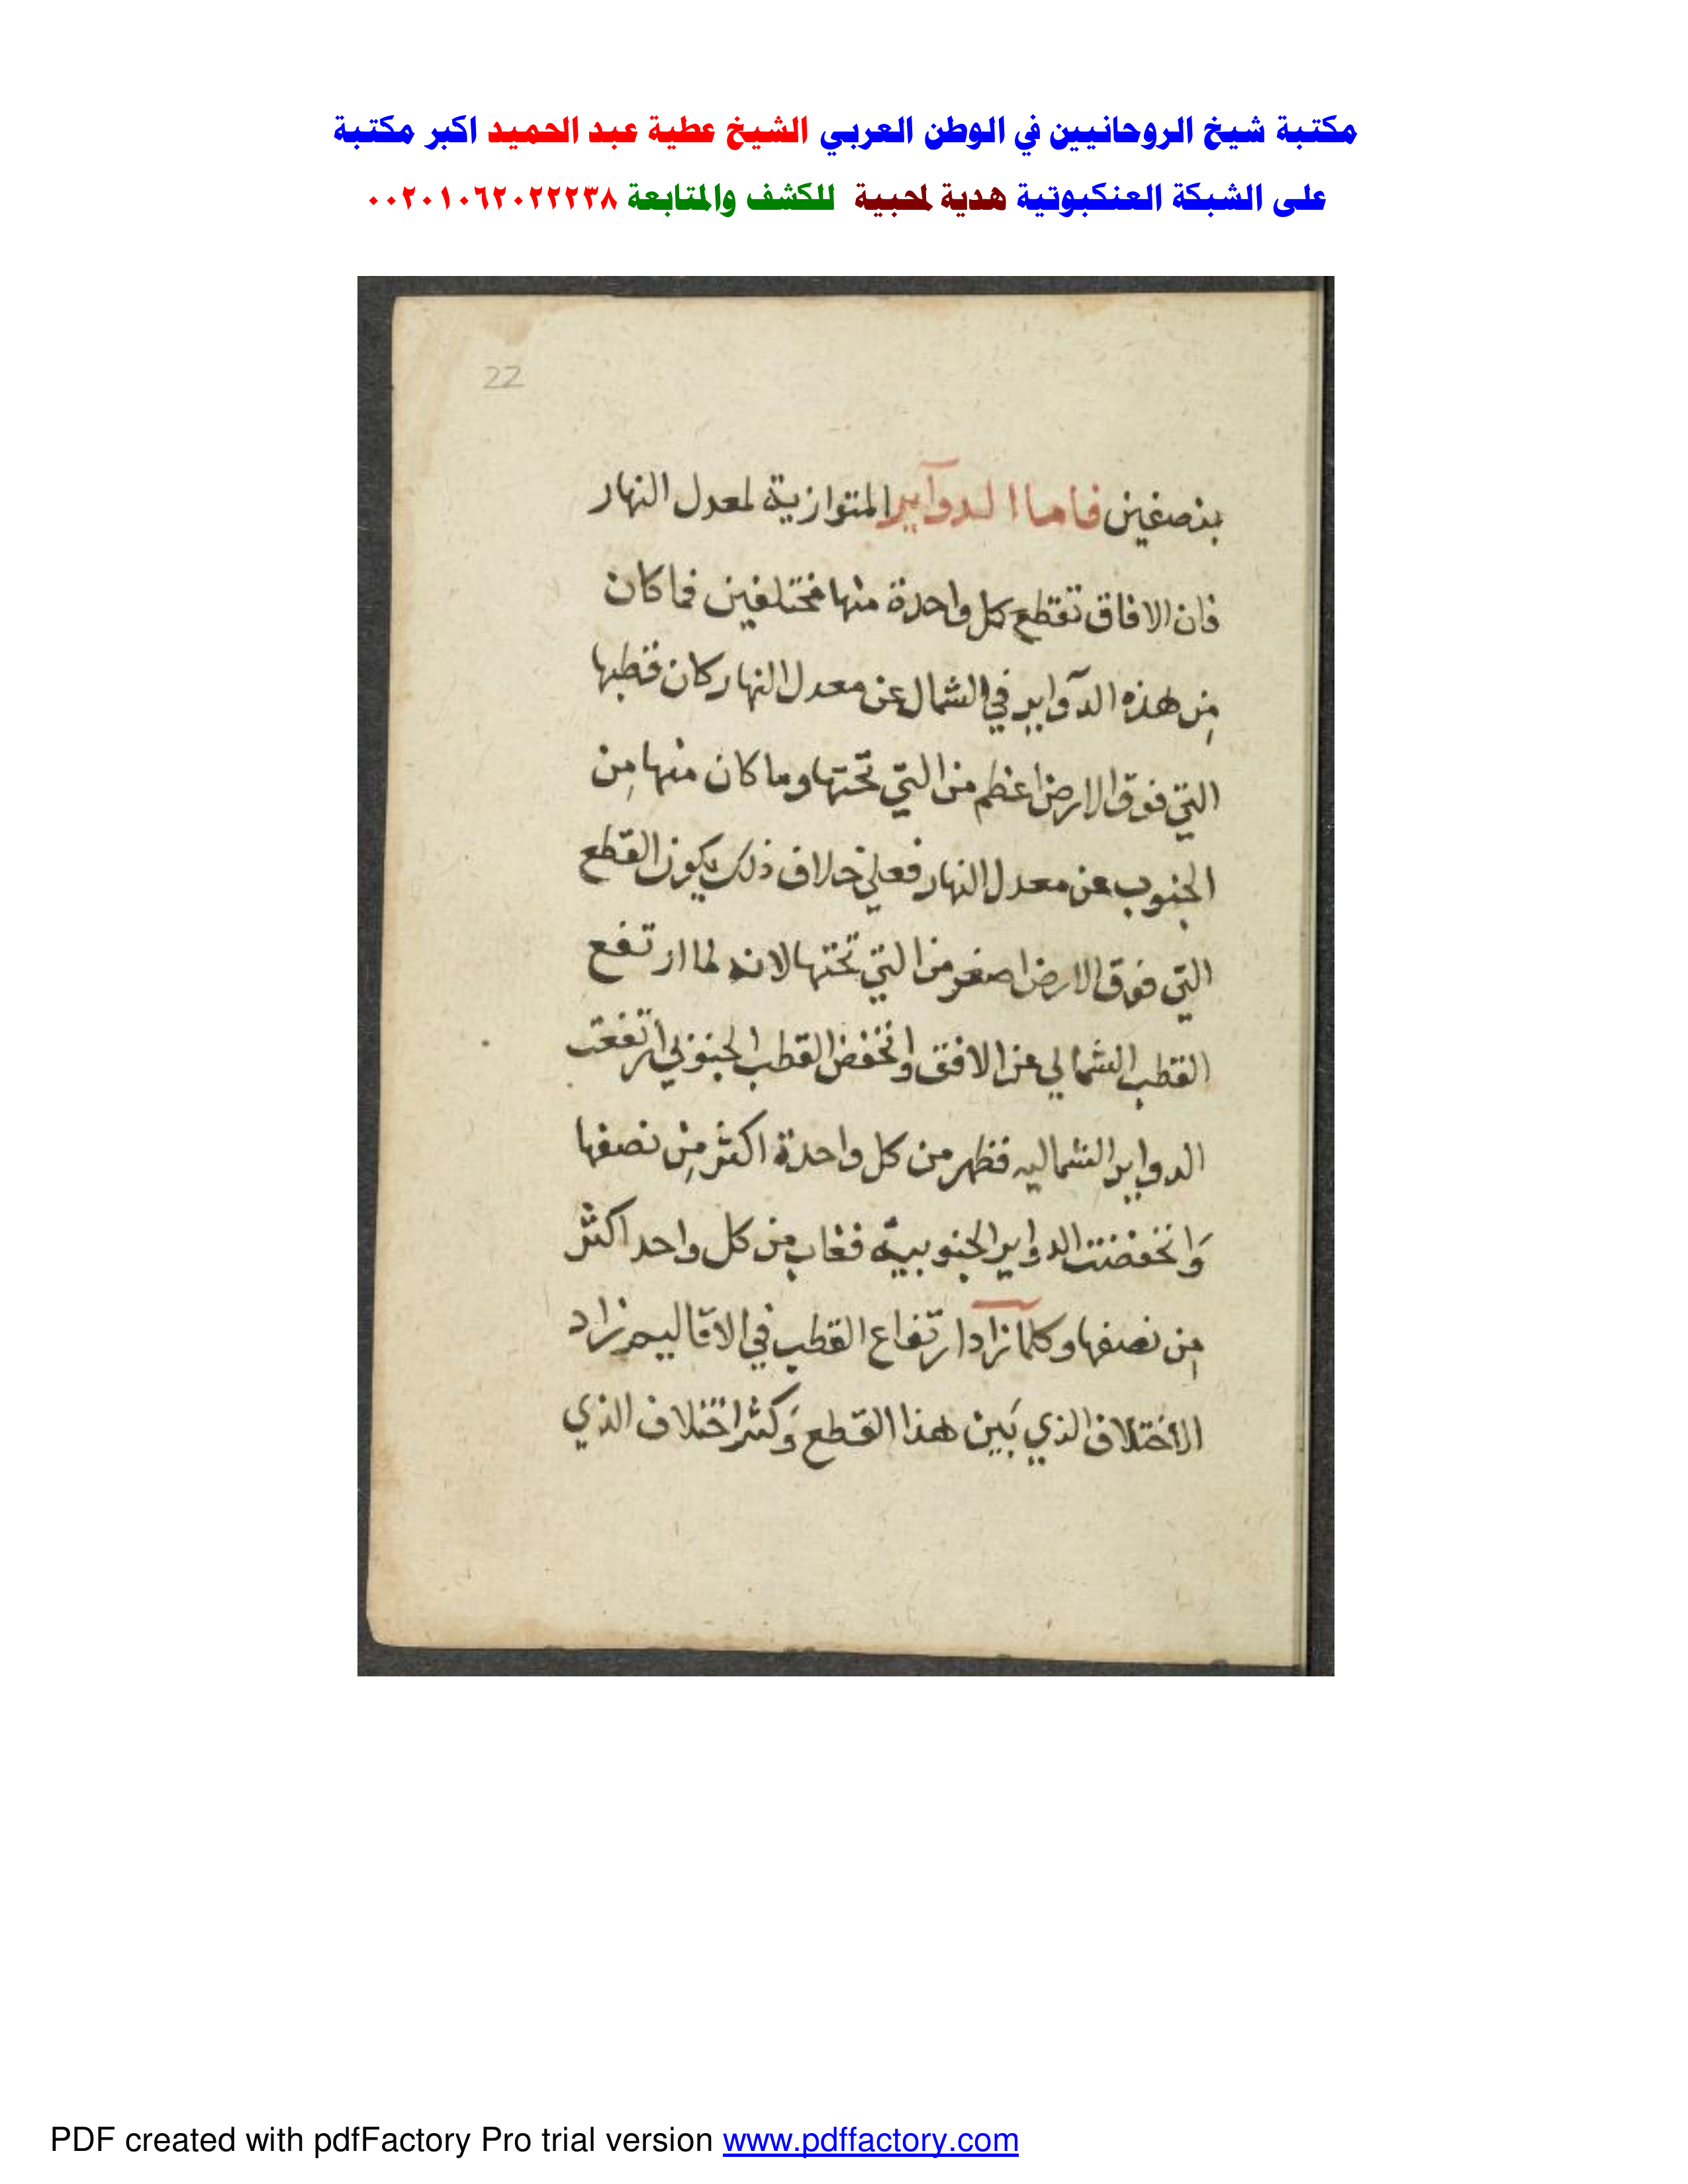 مكتبة شيخ الروحانيين في الوطن العربي الشيخ عطية عبد الحميد اكبر مكتبة
على الشبكة العنكبوتية هدية لمحبية للكشف والمتابعة ٠٠٢٠١٠٦٢٠٢٢٢٣٨
22
بنصفين فاما الدوآير المتوازية لمعدل النهار
فان الافاق تقطع كل واحدة منها مختلفين فما كان
مِن هذه الدآواير في الشمال عن معدل النهار كان قطبها
التي فوق الارض اعظم من التي تحتها وما كان منها مِن
الجنوب عن معدل النهار فعلي خلاف ذلك يكون القطع
التي فوق الارض اصغر من التي تحتها لانه لما ارتفع
القطب الشمالي عن الافق وانخفض القطب الجنوبي ارتفعت
الدواير الشماليه فظهر من كل واحدة اكثر مِن نصفها
وَانخفضت الدواير الجنوبية فغاب من كل واحد اكثر
مِن نصفها وكلما زاد ارتفاع القطب في الاقاليم زاد
الاختلاف الذي بَين هذا القطع وَكثر اختلاف الذي
PDF created with pdfFactory Pro trial version www.pdffactory.com